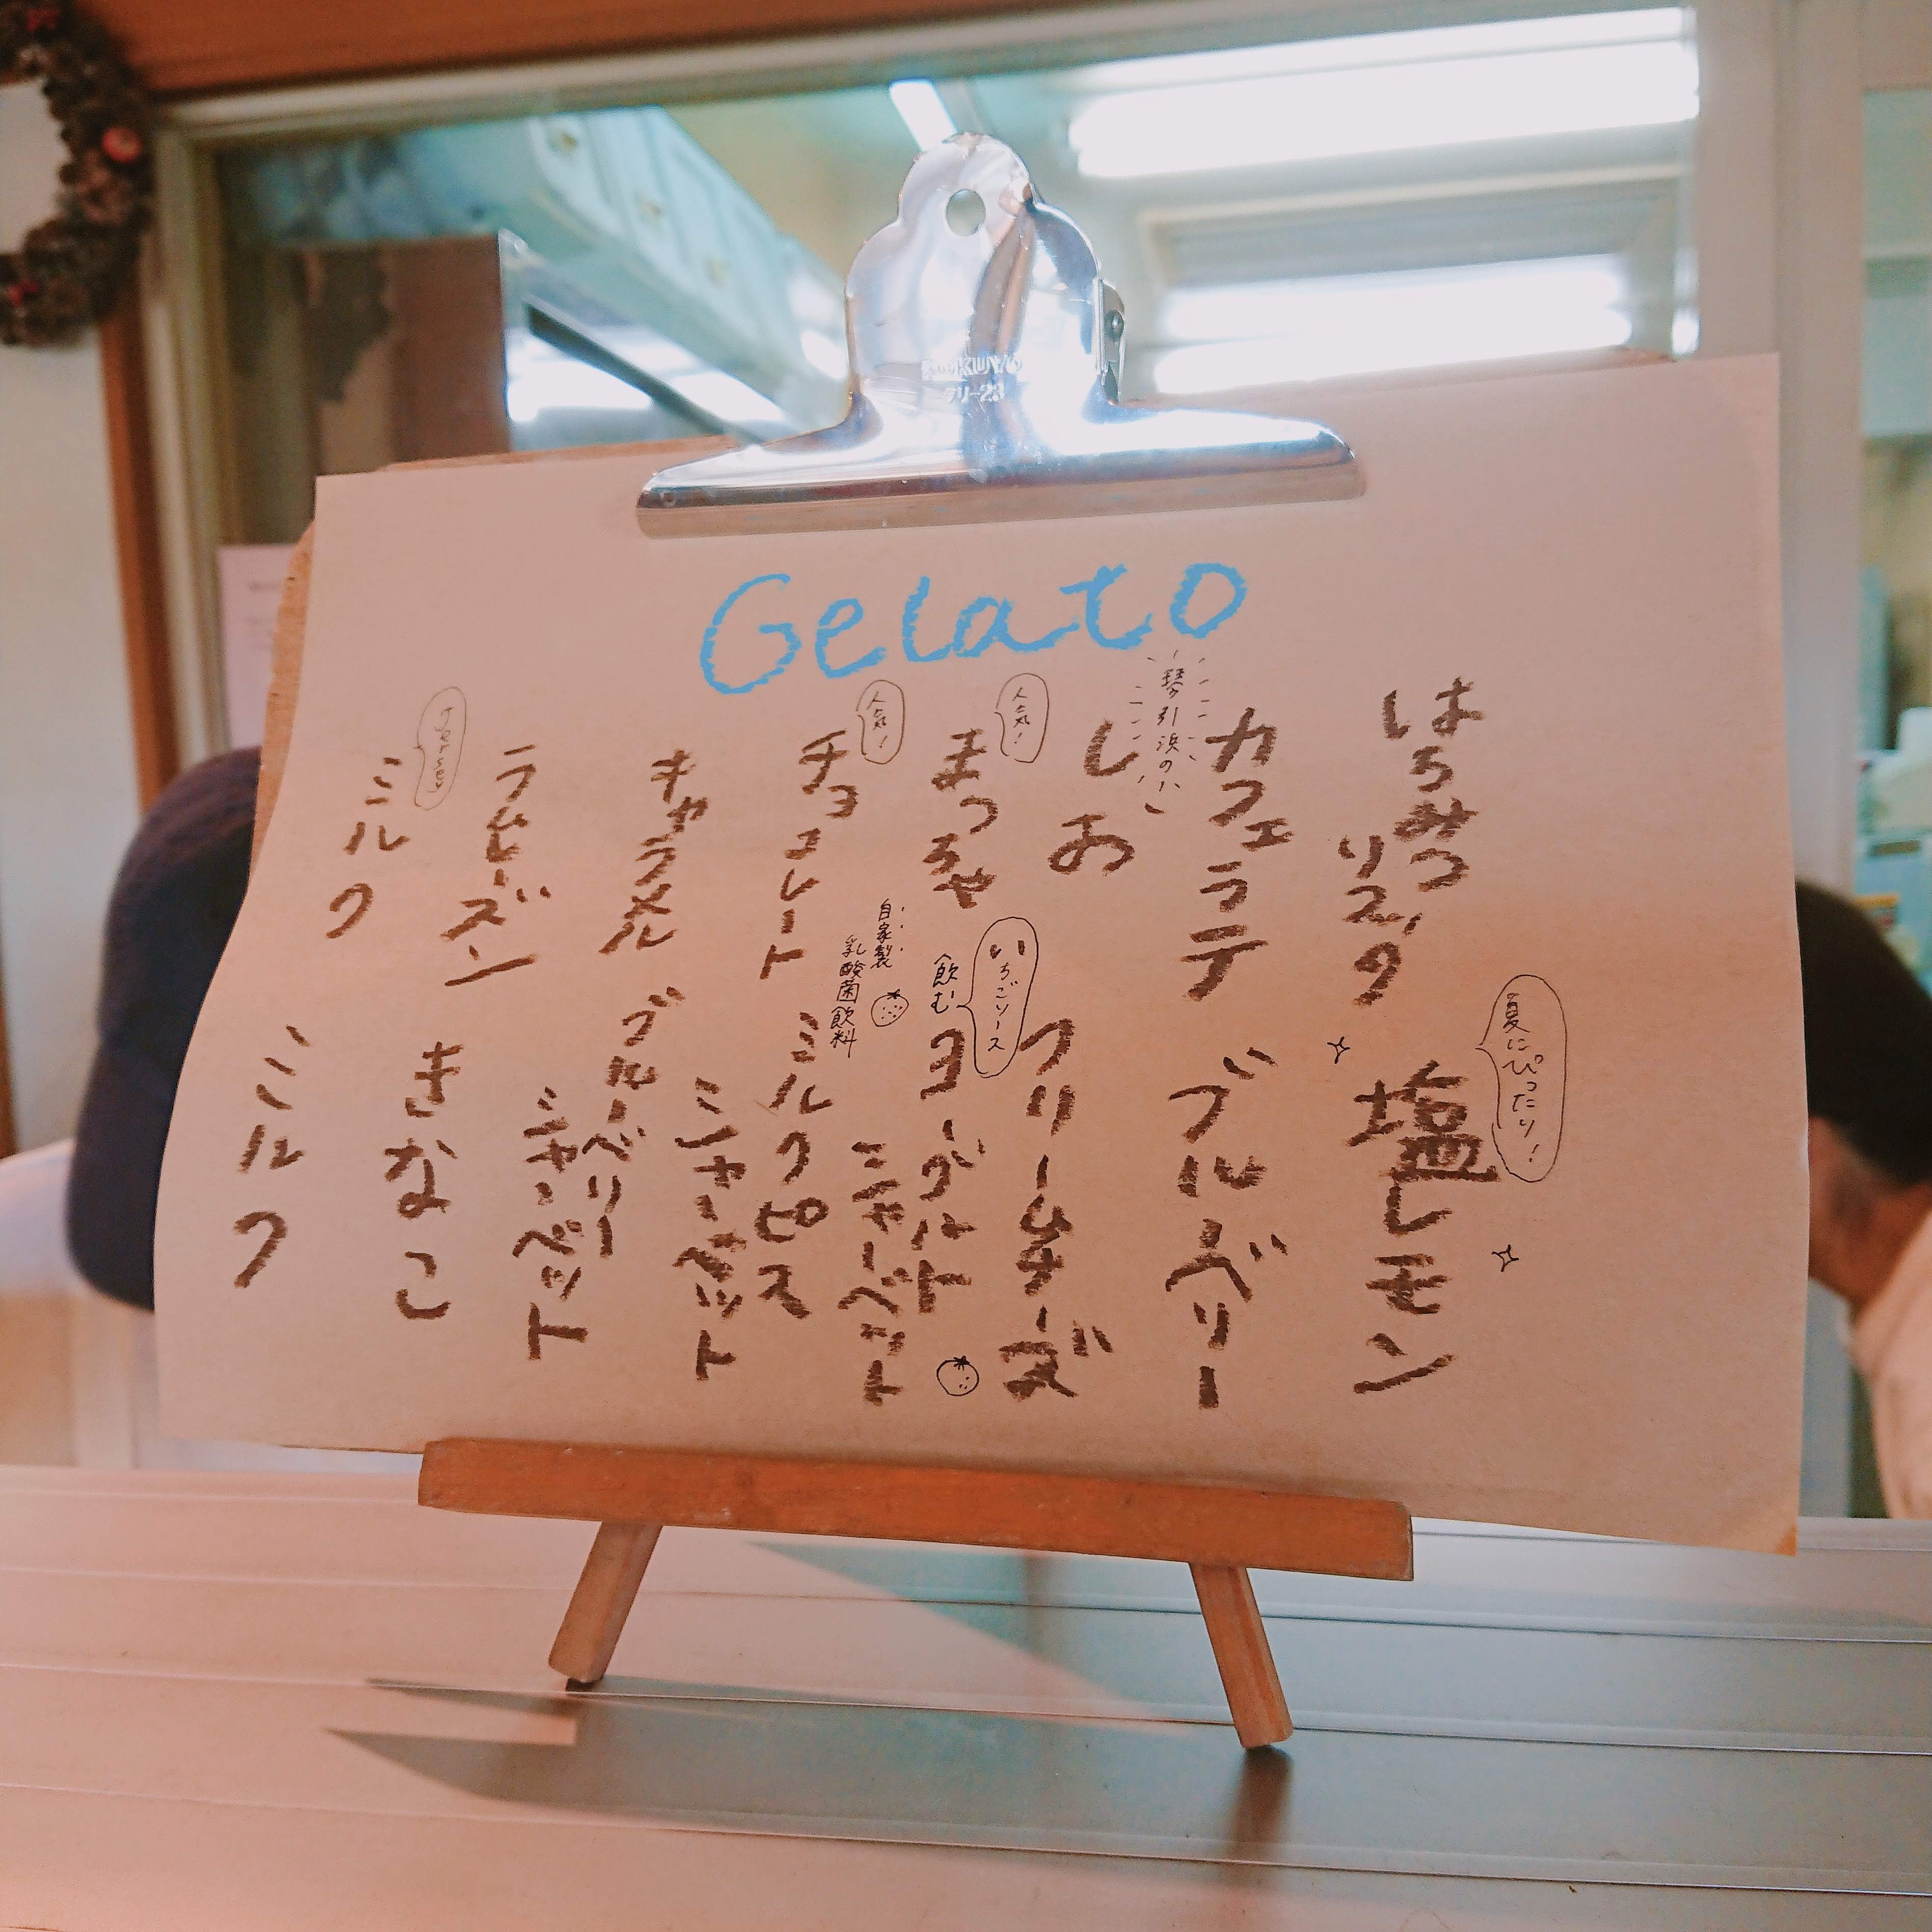 KOKUYO
クリ-23
Gelato
はちみつ
カフェラテ
琴引浜の
しお
人気!
まっちゃ
人気!
チョコレート
キャラメル
ラムレーズン
Jersey
ミルク
夏にぴったり!
塩レモン
ブルベリー
クリームチーズ
いちごソース
飲むヨーグルト
シャーベット
自家製
乳酸菌飲料
ミルクピス
シャーベット
ブルーベリー
シャーベット
きなこ
ミルク